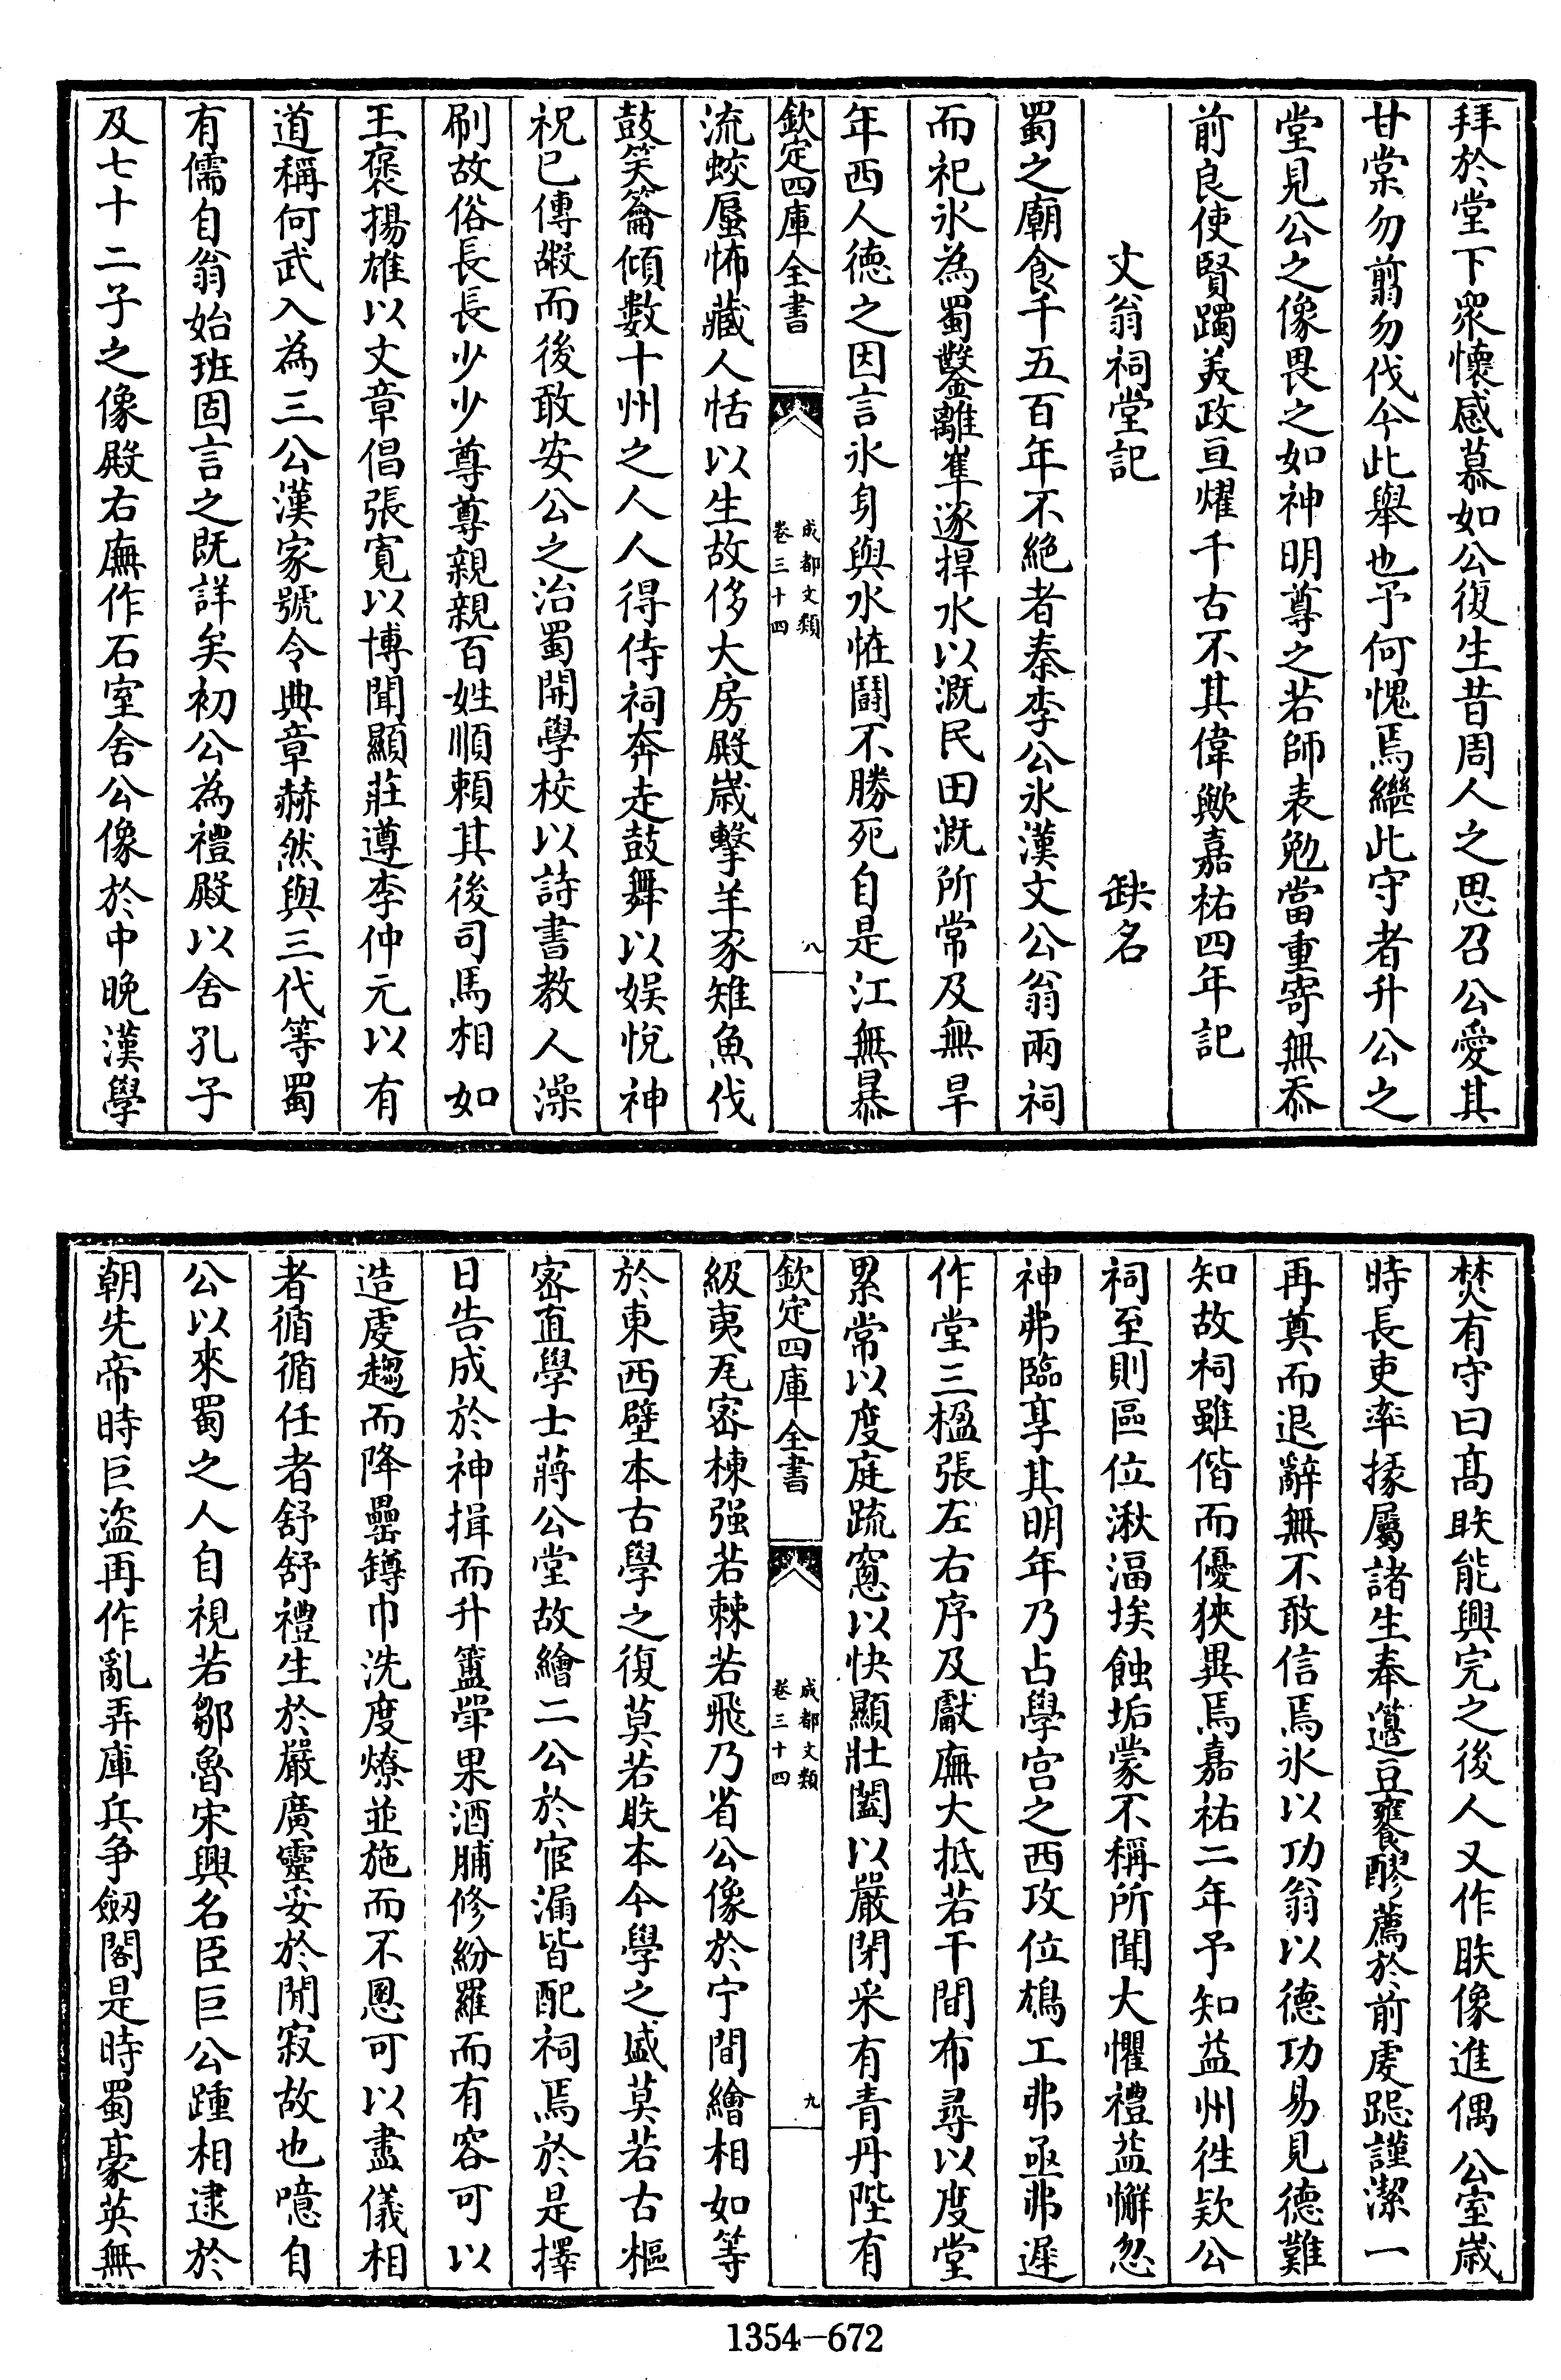 拜於堂下衆懷感慕如公復生昔周人之思召公愛其
甘棠勿翦勿伐今此舉也予何愧焉繼此守者升公之
堂見公之像畏之如神明尊之若師表勉當重寄無忝
前良使賢躅美政亘燿千古不其偉歟嘉祐四年記
文翁祠堂記 缺名
蜀之廟食千五百年不絶者秦李公氷漢文公翁兩祠
而祀氷為蜀鑿離堆逐捍水以溉民田溉所常及無旱
年西人徳之因言氷身與水恠鬬不勝死自是江無暴
欽定四庫全書
成都文類
卷三十四
八
流蛟蜃怖藏人恬以生故侈大房殿歲擊羊豕雉魚伐
鼓笑籥傾數十州之人人得侍祠奔走鼓舞以娱悅神
祝已傳嘏而後敢安公之治蜀開學校以詩書教人澡
刷故俗長長少少尊尊親親百姓順賴其後司馬相如
王褒揚雄以文章倡張寛以博聞顯莊遵李仲元以有
道稱何武入為三公漢家號令典章赫然與三代等蜀
有儒自翁始班固言之既詳矣初公為禮殿以舍孔子
及七十二子之像殿右廡作石室舍公像於中晚漢學
焚有守曰髙䀢能興完之後人又作䀢像進偶公室歲
時長吏率掾屬諸生奉籩豆饔醪薦於前虔跽謹潔一
再奠而退辭無不敢信焉氷以功翁以德功易見德難
知故祠雖偕而優狹異焉嘉祐二年予知益州徃欵公
祠至則區位湫湢埃蝕垢蒙不稱所聞大懼禮益懈忽
神弗臨享其明年乃占學宫之西攻位鳩工弗亟弗遲
作堂三楹張左右序及獻廡大抵若干間布尋以度堂
累常以度庭疏窓以快顯壯闔以嚴閉采有青丹陛有
欽定四庫全書
成都文類
卷三十四
九
級夷瓦宻棟强若棘若飛乃省公像於宁間繪相如等
於東西壁本古學之復莫若䀢本今學之盛莫若古樞
宻直學士蔣公堂故繪二公於宧漏皆配祠焉於是擇
日告成於神揖而升簠斝果酒脯修紛羅而有容可以
造虔趨而降罍罇巾洗度燎並施而不慁可以盡儀相
者循循任者舒舒禮生於嚴廣靈妥於閒寂故也噫自
公以來蜀之人自視若鄒魯宋興名臣巨公踵相逮於
朝先帝時巨盗再作亂弄庫兵争劒閣是時蜀豪英無
1354-672